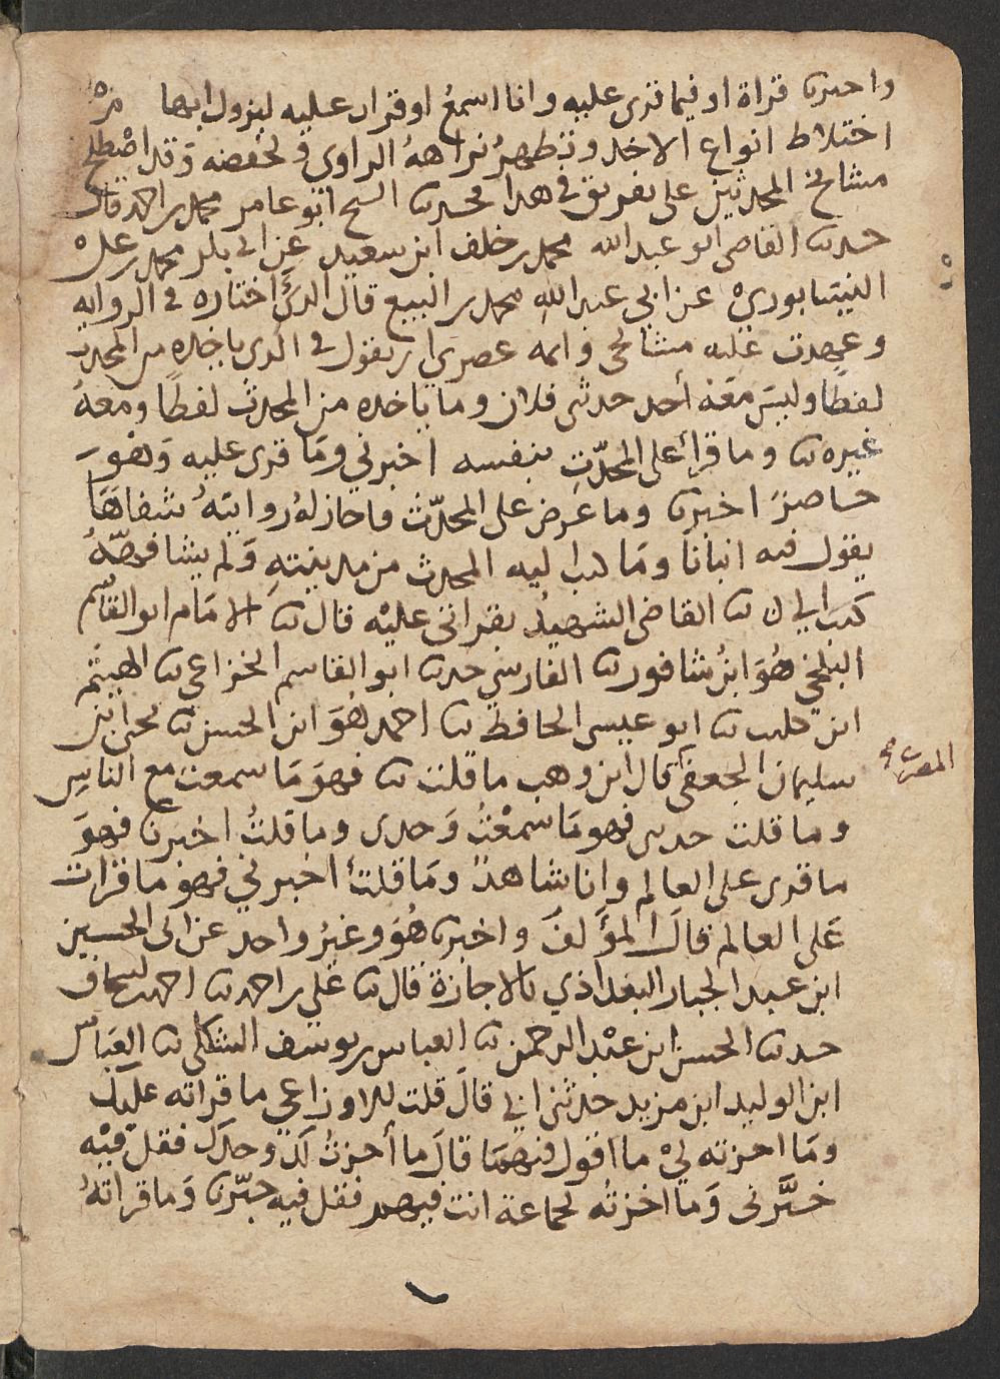 واخبرنا قراة او فيما قرى عليه وانا اسمع او قرات عليه ليزول ابهام
اختلاط انواع الاخذ وتظهر نزاهة الراوى وتحفظه وقد اصطلح
مشايخ المحدثين على تفريق في هذا فحدثنا الشيخ ابو عامر محمد بن احمد قال
حدثنا القاضي ابو عبدالله محمد بن خلف ابن سعيد عن ابي بكر محمد بن على
النيسابوري عن ابي عبد الله محمد بن البيع قال الذي اختاره في الرواية
وعهدت عليه مشائخى وايمه عصرى ان يقول في الذى ياخذه من المحدث
لفظا وليس معه أحد حدثنى فلان وما ياخذه من المحدث لفظا ومعه
غيره نا وما قرأ على المحدّث بنفسه اخبرني وما قرى عليه وهو
حاضر اخبرنا وما عرض على المحدّث فاجاز له روايته شفاها
يقول فيه انبانا وما كتب اليه المحدث من مدينته ولم يشافهه
كتب الي فلان نا القاضى الشهيد بقراتى عليه قال نا الامام ابو القاسم
البلخي هو ابن شافور نا الفارسي حدثنا ابو القاسم الخزاعي نا الهيثم
ابن كليب نا ابو عيسى الحافظ نا احمد هو ابن الحسن نا يحيى ابن
سليمان الجعفى قال ابن وهب ما قلت نا فهو ما سمعت مع الناس
المصرى صح
وما قلت حدثنى فهو ما سمعت وحدى وما قلت اخبرنا فهو
ما قرى على العالم وانا شاهد وما قلت اخبرني فهو ما قرات
على العالم قال المؤلف واخبرنا هو وغير واحد عن ابى الحسين
ابن عبد الجبار البغداذي بالاجازة قال نا علي بن احمد نا احمد بن اسحاق
حدثنا الحسن ابن عبد الرحمن نا العباس بن يوسف الشكلي نا العباس
ابن الوليد ابن مزيد حدثنى ابي قال قلت للاوزاعي ما قراته عليك
وما اجزته لي ما اقول فيهما قال ما أجزت لك وحدك فقل فيه
خبّرنى وما اجزته لجماعة انت فيهم فقل فيه خبّرنا وما قراته